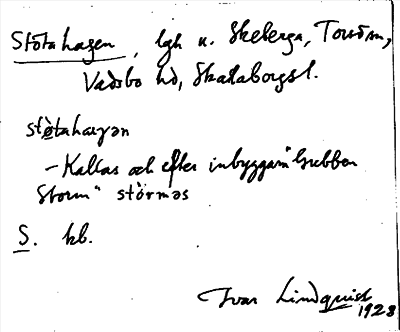 Stötahagen, lgh u. Skeberga, Torsö sn,
Vadsbo hd, Skaraborgs l.
stø̀tahaɡən
- Kallas och efter inbyggarn "Gubben
Storm" stòrməs
S. kb.
Ivar Lindquist
1923